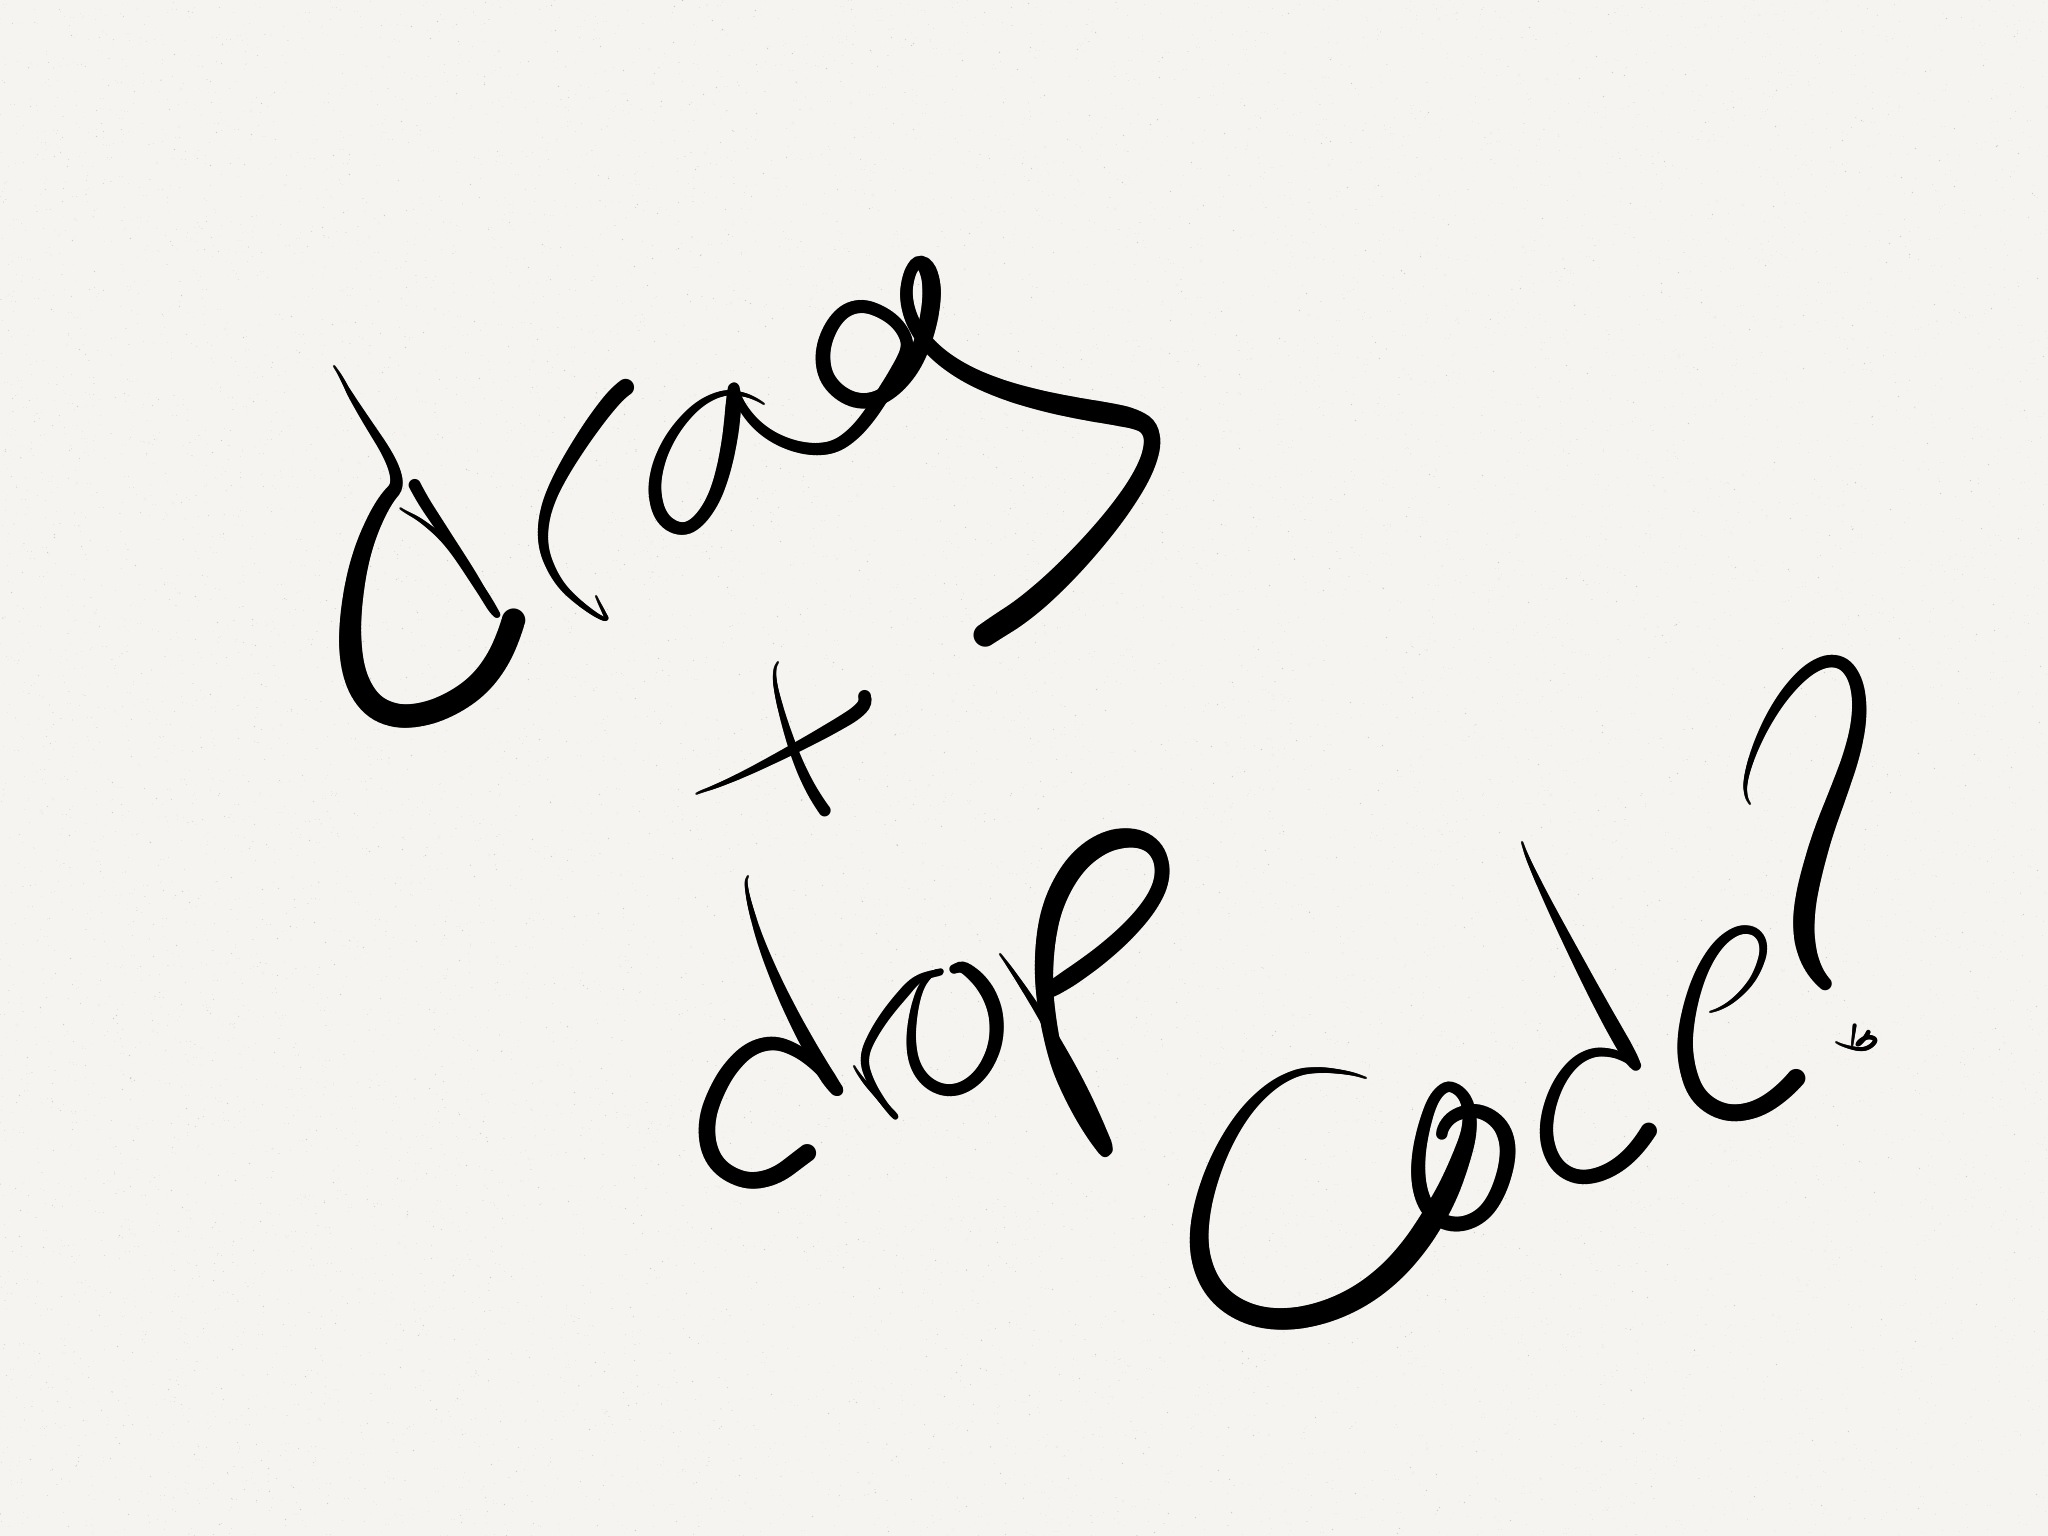 drag
+
drop
code?